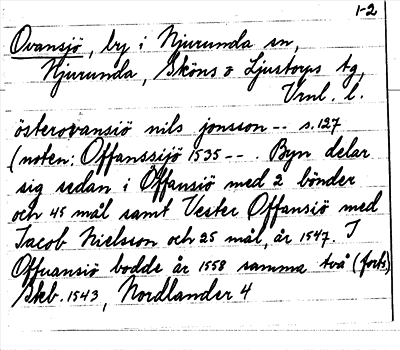 1-2
Ovansjö, by i Njurunda sn,
Njurunda, Sköns o Ljustorps tg,
Vrnl. l.
österovansiö nils jonsson -- s. 127
(noten: Offanssijö 1535 -- . Byn delar
sig sedan i Øffansiö med 2 bönder
och 45 mål samt Vester Øffansiö med
Jacob Nielsson och 25 mål, år 1547. I
Offuansiö bodde år 1558 samma två (forts)
Skb. 1543, Nordlander 4